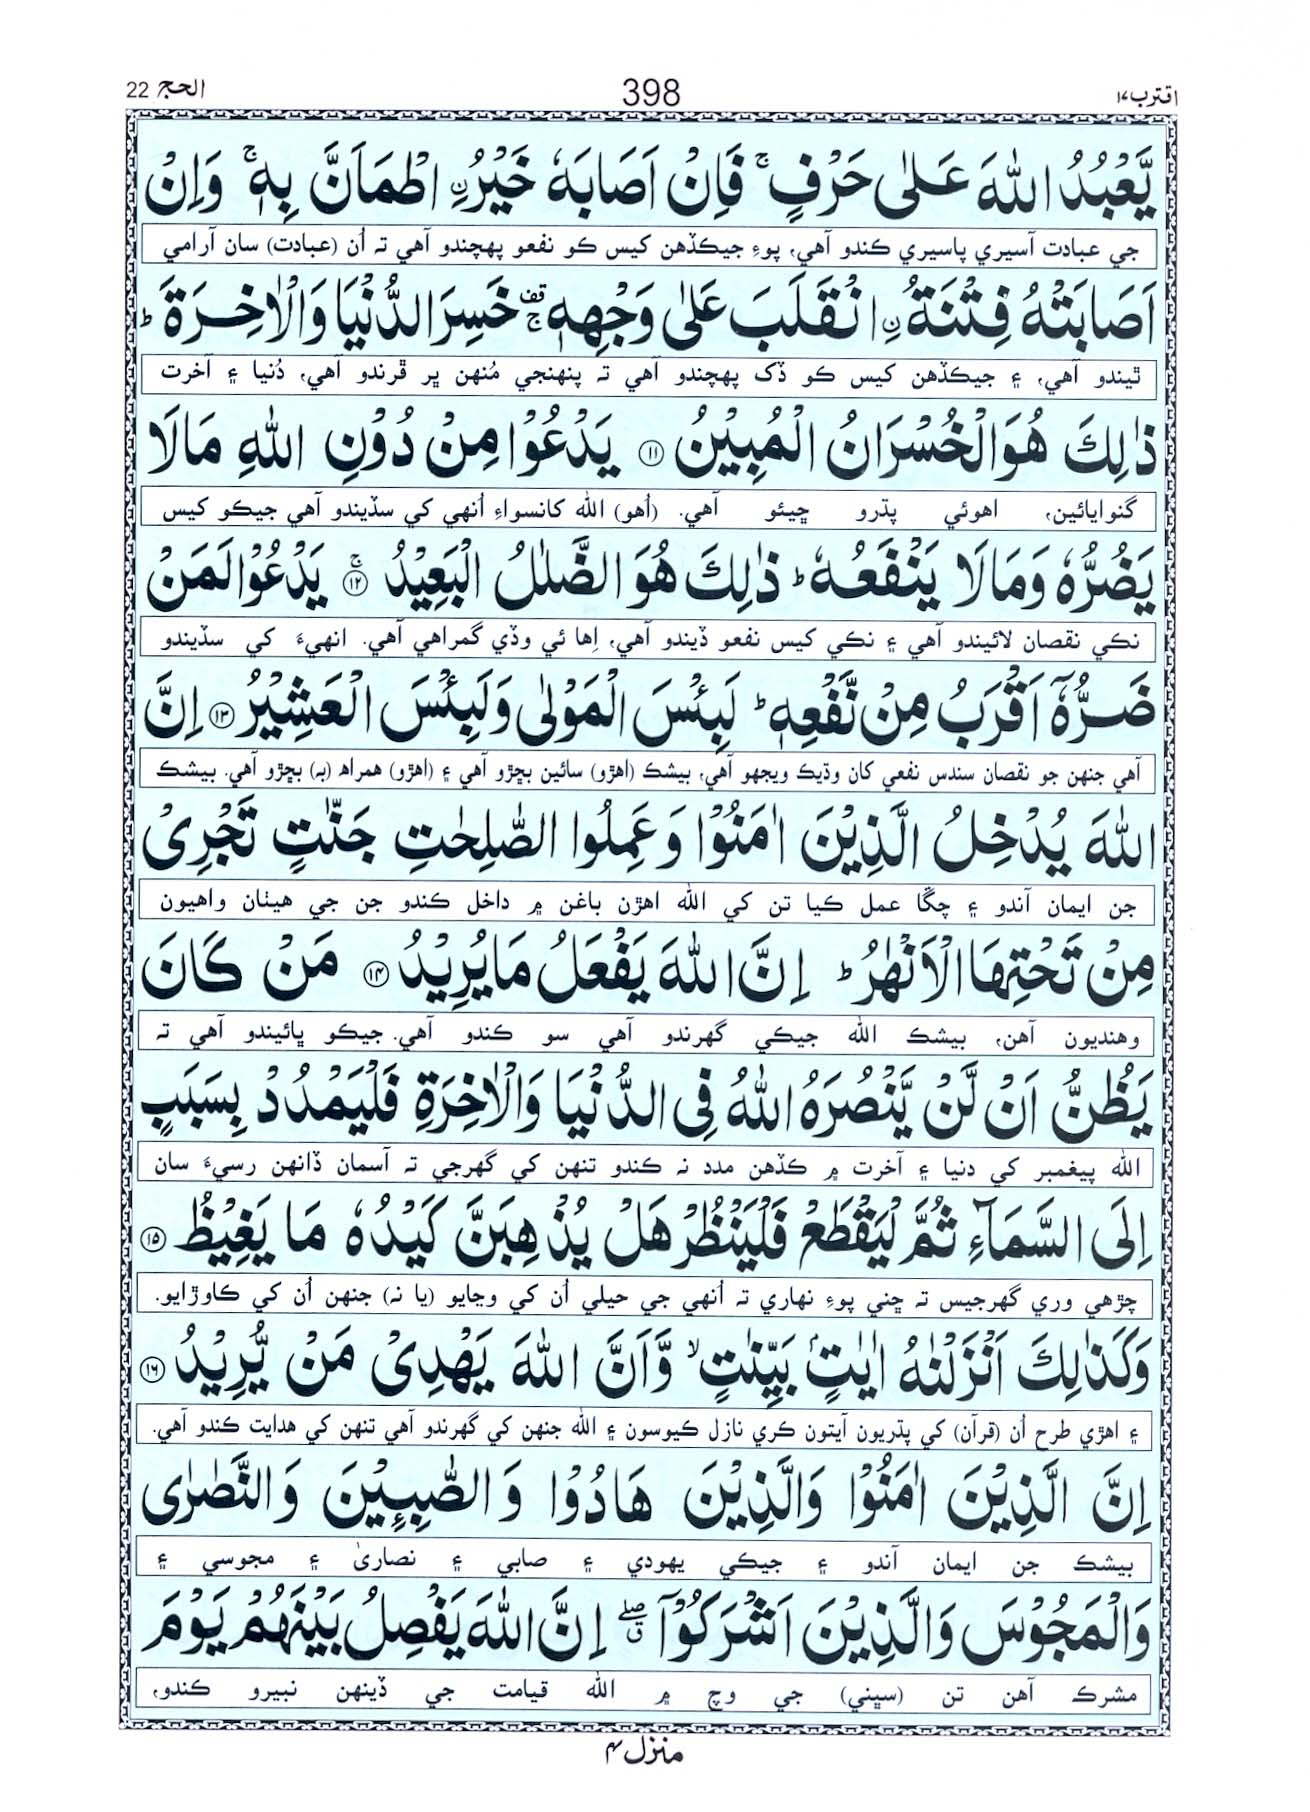 اقترب ۱۷ 398 الحج 22
يَّعۡبُدُ اللّٰهَ عَلٰى حَرۡفٍ ۚ فَاِنۡ اَصَابَهٗ خَيۡرُ ۨاطۡمَاَنَّ بِهٖ ۚ وَاِنۡ
جي عبادت آسيري پاسيري ڪندو آهي، پوءِ جيڪڏهن کيس ڪو نفعو پهچندو آهي ته اُن (عبادت) سان آرامي
اَصَابَتۡهُ فِتۡنَةُ ۨانْقَلَبَ عَلٰى وَجۡهِهٖ ۚ قف خَسِرَ الدُّنۡيَا وَالۡاٰخِرَةَ ؕ
ٿيندو آهي، ۽ جيڪڏهن کيس ڪو ڏک پهچندو آهي ته پنهنجي مُنهن ڀر ڦرندو آهي، دُنيا ۽ آخرت
ذٰلِكَ هُوَ الۡخُسۡرَانُ الۡمُبِيۡنُ ۱۱ يَدۡعُوۡا مِنۡ دُوۡنِ اللّٰهِ مَا لَا
گنوايائين، اهوئي پڌرو ڇيئو آهي. (اُهو) الله کانسواءِ اُنهي کي سڏيندو آهي جيڪو کيس
يَضُرُّهٗ وَمَا لَا يَنۡفَعُهٗ ؕ ذٰلِكَ هُوَ الضَّلٰلُ الۡبَعِيۡدُ ۚ ۱۲ يَدۡعُوۡا لَمَنۡ
نڪي نقصان لائيندو آهي ۽ نڪي کيس نفعو ڏيندو آهي، اِها ئي وڏي گمراهي آهي. انهيءَ کي سڏيندو
ضَرُّهٗۤ اَقۡرَبُ مِنۡ نَّفۡعِهٖ ؕ لَبِئۡسَ الۡمَوۡلٰى وَلَبِئۡسَ الۡعَشِيۡرُ ۱۳ اِنَّ
آهي جنهن جو نقصان سندس نفعي کان وڌيڪ ويجهو آهي، بيشڪ (اهڙو) سائين بڇڙو آهي ۽ (اهڙو) همراه (به) بڇڙو آهي. بيشڪ
اللّٰهَ يُدۡخِلُ الَّذِيۡنَ اٰمَنُوۡا وَعَمِلُوا الصّٰلِحٰتِ جَنّٰتٍ تَجۡرِىۡ
جن ايمان آندو ۽ چڱا عمل ڪيا تن کي الله اهڙن باغن ۾ داخل ڪندو جن جي هيٺان واهيون
مِنۡ تَحۡتِهَا الۡاَنۡهٰرُ ؕ اِنَّ اللّٰهَ يَفۡعَلُ مَا يُرِيۡدُ ۱۴ مَنۡ كَانَ
وهنديون آهن، بيشڪ الله جيڪي گهرندو آهي سو ڪندو آهي. جيڪو ڀائيندو آهي ته
يَظُنُّ اَنۡ لَّنۡ يَّنۡصُرَهُ اللّٰهُ فِى الدُّنۡيَا وَالۡاٰخِرَةِ فَلۡيَمۡدُدۡ بِسَبَبٍ
الله پيغمبر کي دنيا ۽ آخرت ۾ ڪڏهن مدد نه ڪندو تنهن کي گهرجي ته آسمان ڏانهن رسيءَ سان
اِلَى السَّمَآءِ ثُمَّ لۡيَـقۡطَعۡ فَلۡيَنۡظُرۡ هَلۡ يُذۡهِبَنَّ كَيۡدُهٗ مَا يَغِيۡظُ ۱۵
چڙهي وري گهرجيس ته ڇني پوءِ نهاري ته اُنهي جي حيلي اُن کي وڃايو (يا نه) جنهن اُن کي ڪاوڙايو.
وَكَذٰلِكَ اَنۡزَلۡنٰهُ اٰيٰتٍۢ بَيِّنٰتٍ ۙ وَّاَنَّ اللّٰهَ يَهۡدِىۡ مَنۡ يُّرِيۡدُ ۱۶
۽ اهڙي طرح اُن (قرآن) کي پڌريون آيتون ڪري نازل ڪيوسون ۽ الله جنهن کي گهرندو آهي تنهن کي هدايت ڪندو آهي.
اِنَّ الَّذِيۡنَ اٰمَنُوۡا وَالَّذِيۡنَ هَادُوۡا وَالصّٰبِـِٕيۡنَ وَالنَّصٰرٰى
بيشڪ جن ايمان آندو ۽ جيڪي يهودي ۽ صابي ۽ نصاريٰ ۽ مجوسي ۽
وَالۡمَجُوۡسَ وَالَّذِيۡنَ اَشۡرَكُوۡۤا ۖ ق اِنَّ اللّٰهَ يَفۡصِلُ بَيۡنَهُمۡ يَوۡمَ
مشرڪ آهن تن (سڀني) جي وچ ۾ الله قيامت جي ڏينهن نبيرو ڪندو،
منزل ۴